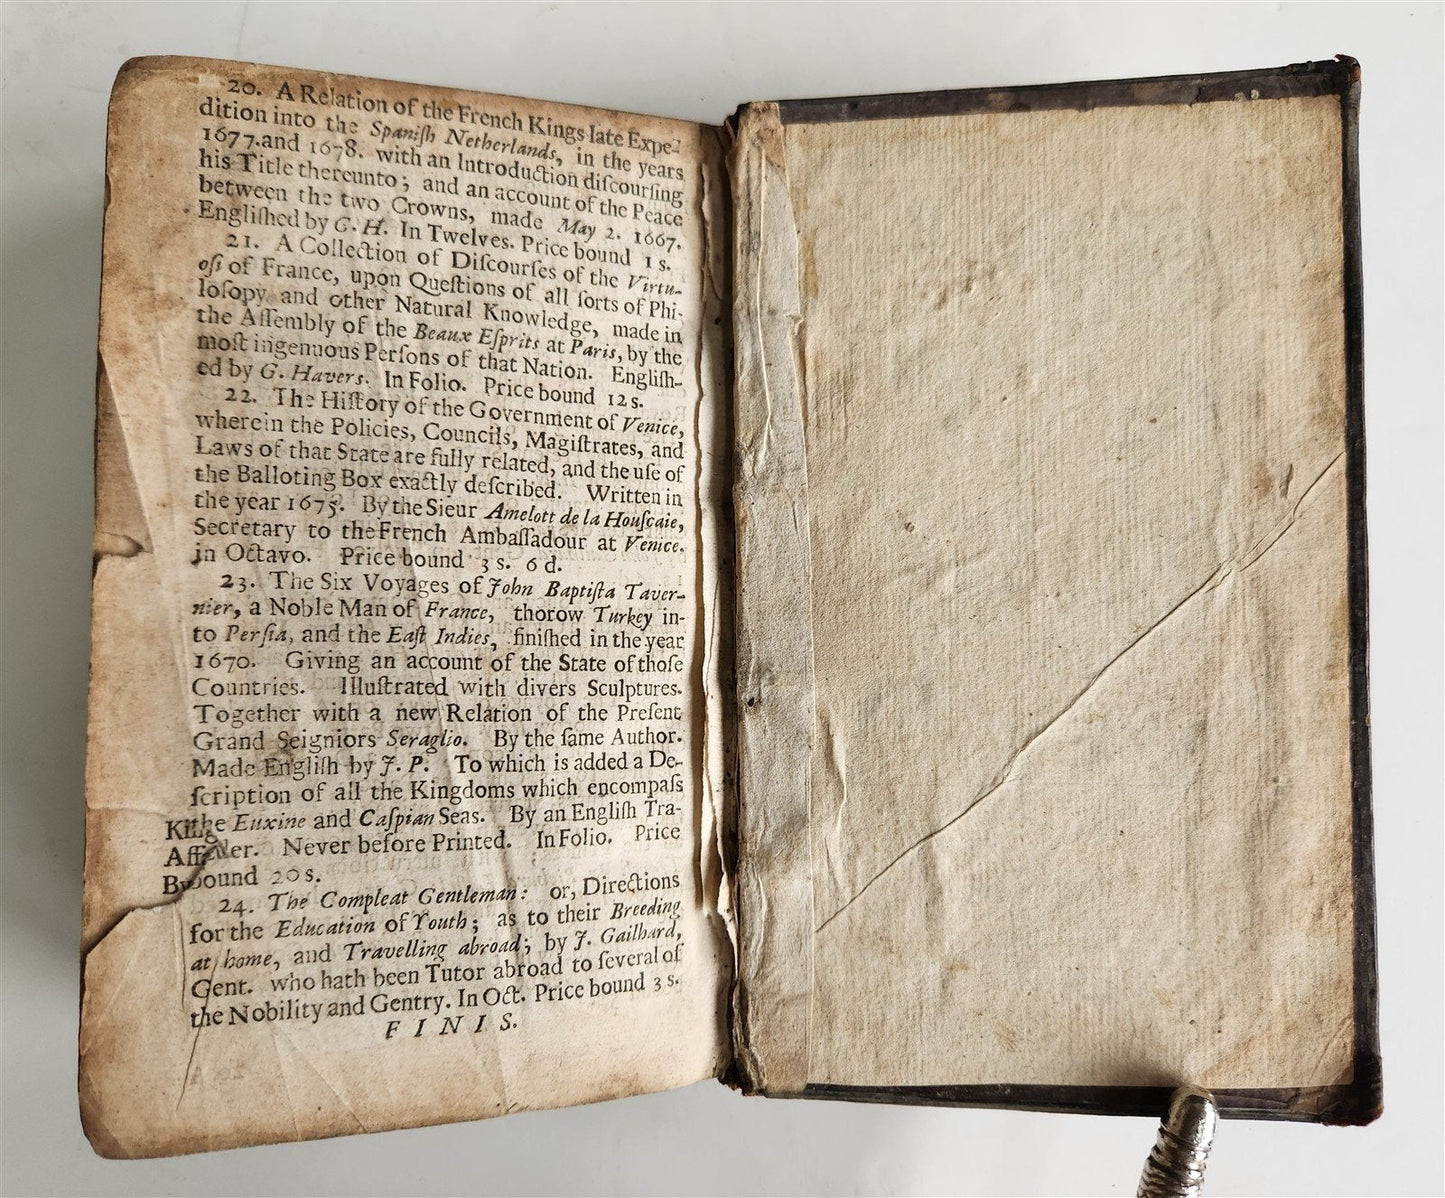 20. A Relation of the French Kings late Expe-
dition into the Spaniſh Netherlands, in the years
1677.and 1678. with an Introduction diſcourſing
his Title thereunto; and an account of the Peace
between the two Crowns, made May 2. 1667.
Engliſhed by G. H. In Twelves. Price bound 1 s.
21. A Collection of Diſcourſes of the Virtu-
oſi of France, upon Queſtions of all ſorts of Phi-
loſopy and other Natural Knowledge, made in
the Aſſembly of the Beaux Eſprits at Paris, by the
moſt ingenuous Perſons of that Nation. Engliſh-
ed by G. Havers. In Folio. Price bound 12 s.
22. The Hiſtory of the Government of Venice,
wherein the Policies, Councils, Magiſtrates, and
Laws of that State are fully related, and the uſe of
the Balloting Box exactly deſcribed. Written in
the year 1675. By the Sieur Amelott de la Houſcaie,
Secretary to the French Ambaſſadour at Venice.
in Octavo. Price bound 3 s. 6 d.
23. The Six Voyages of John Baptiſta Taver-
nier, a Noble Man of France, thorow Turkey in-
to Perſia, and the Eaſt Indies, finiſhed in the year
1670. Giving an account of the State of thoſe
Countries. Illuſtrated with divers Sculptures.
Together with a new Relation of the Preſent
Grand Seigniors Seraglio. By the ſame Author.
Made Engliſh by J. P. To which is added a De-
ſcription of all the Kingdoms which encompaſs
the Euxine and Caſpian Seas. By an Engliſh Tra-
Never before Printed. In Folio. Price
bound 20 s.
24. The Compleat Gentleman: or, Directions
for the Education of Youth; as to their Breeding
at home, and Travelling abroad; by J. Gailhard,
Gent. who hath been Tutor abroad to ſeveral of
the Nobility and Gentry. In Oct. Price bound 3 s.
FINIS.